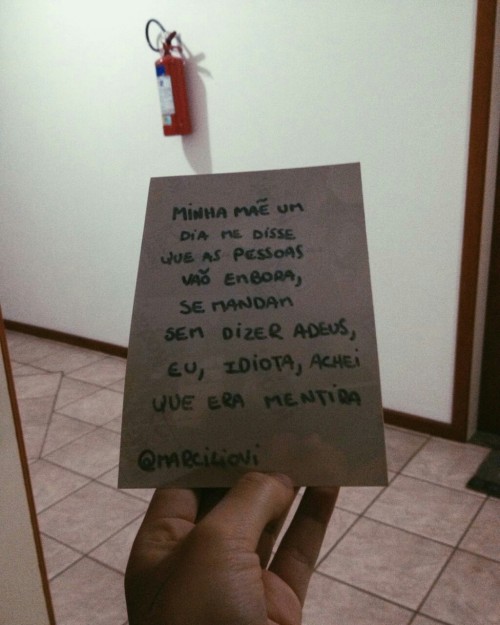 MINHA MAẼ UM
DIA ME DISSE
QUE AS PESSOAS
VAÕ EMBORA,
SE MANDAM
SEM DIZER ADEUS,
EU, IDIOTA, ACHEI
QUE ERA MENTIRA
@MARCILIOVI